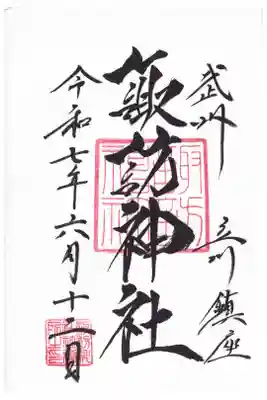 武州 立川 鎮座
諏訪神社
令和七年六月十二日